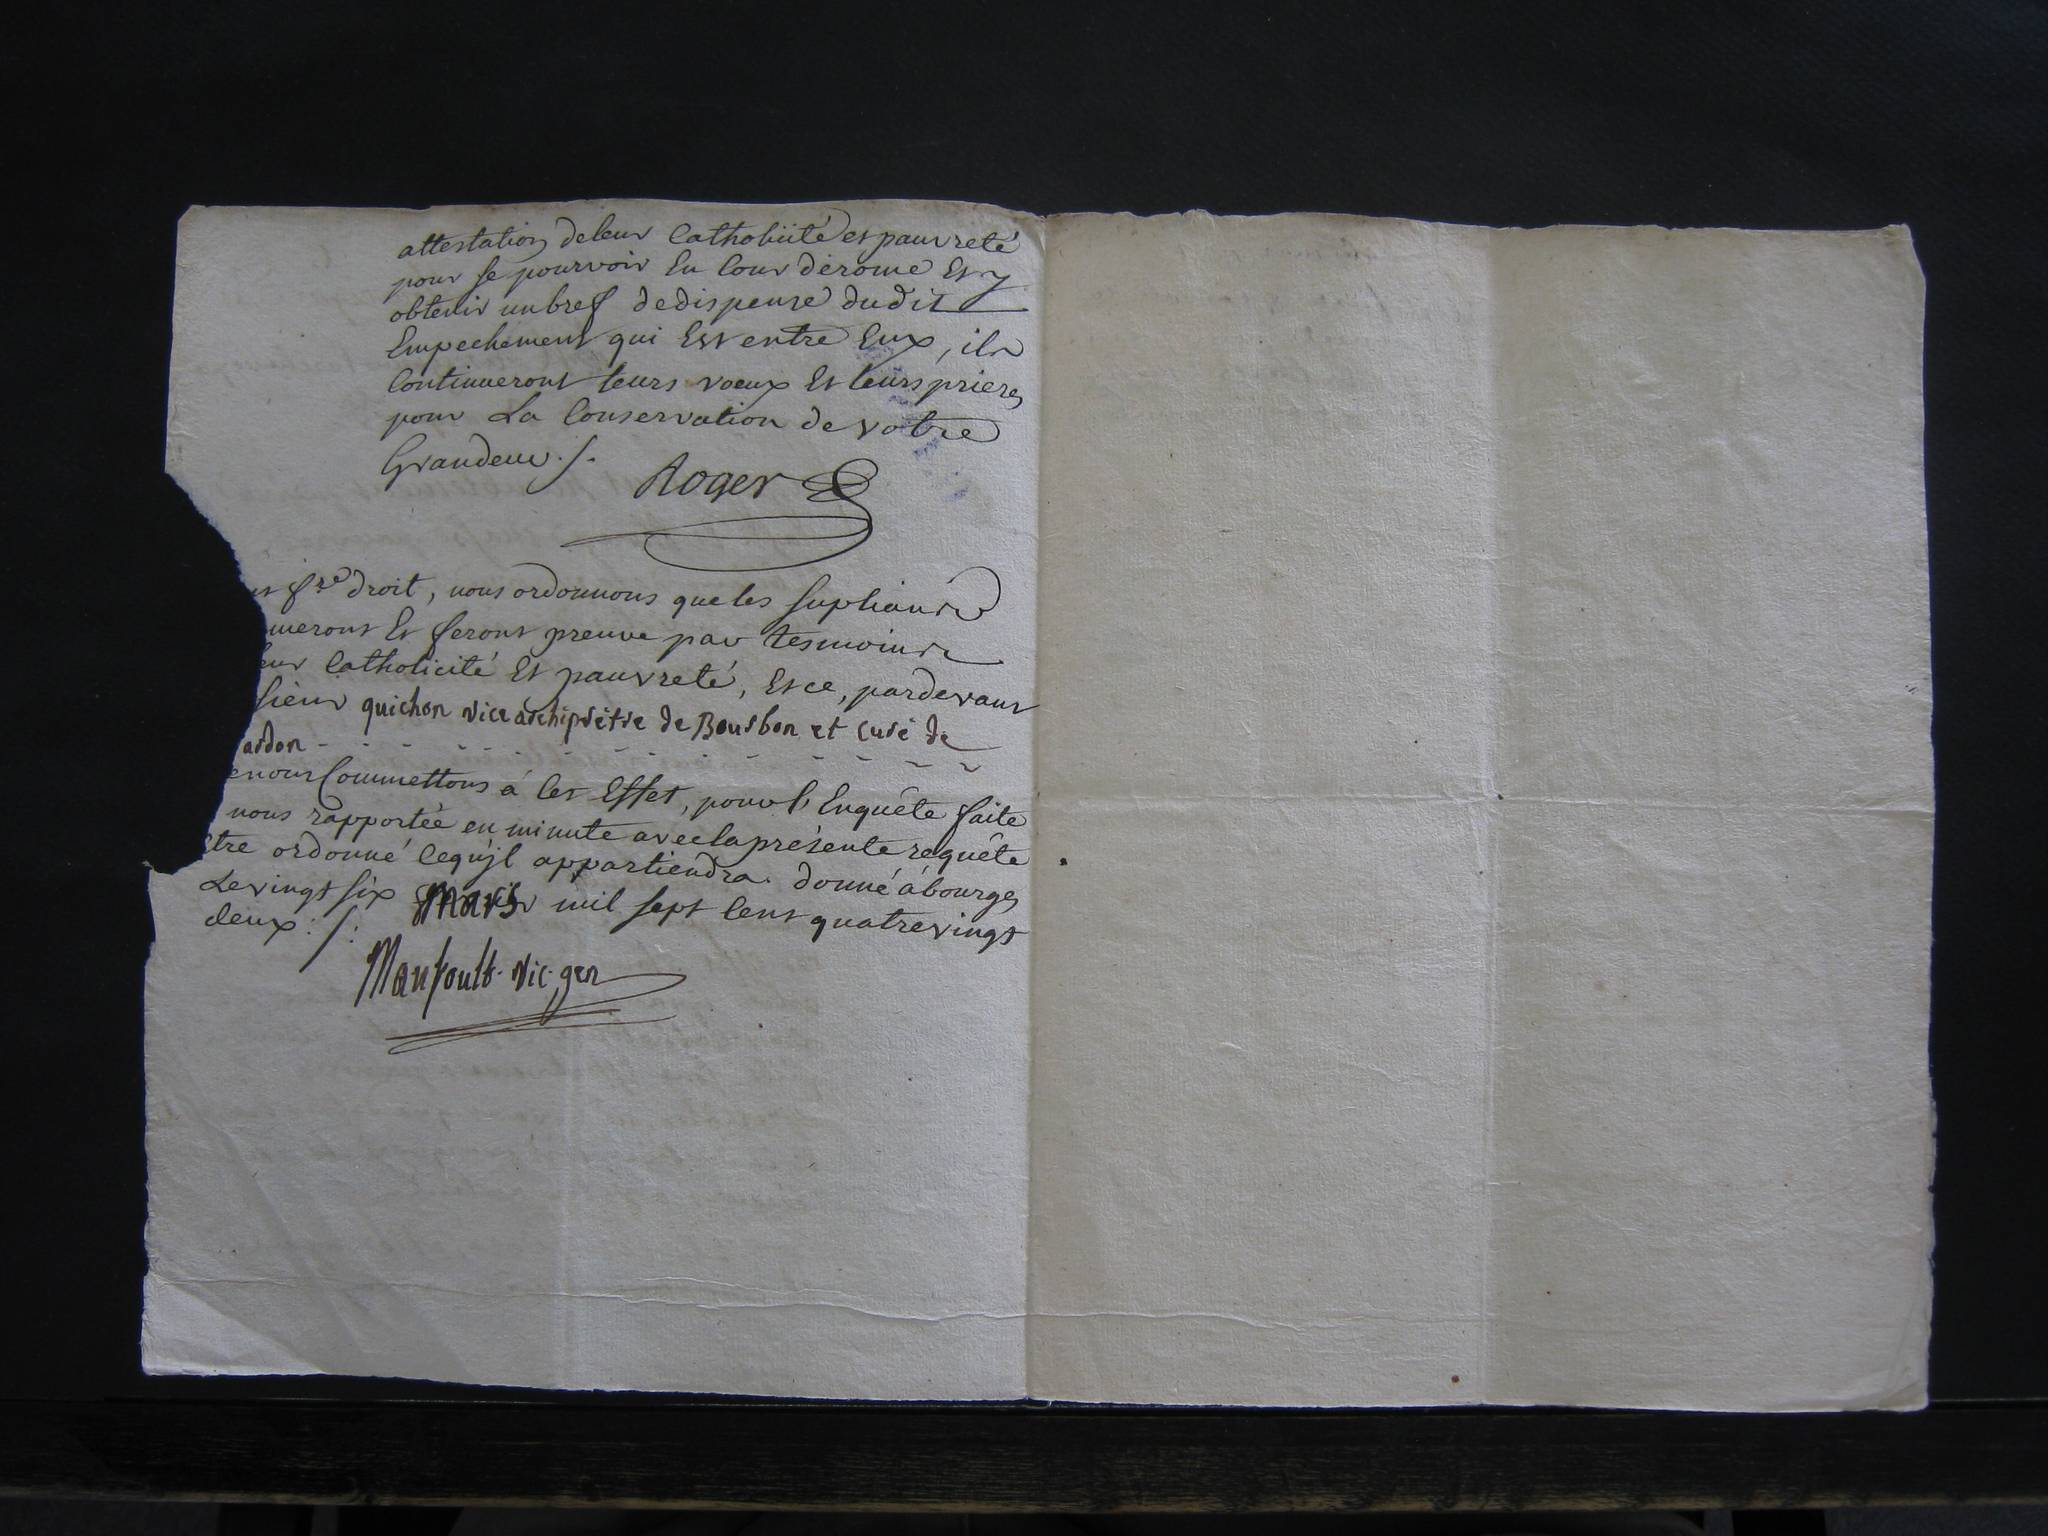 attestation de leur Catholicité et pauvreté
pour se pourvoir En Cour de rome Et y
obtenir un bref de dispense dudit
Empechement qui Est entre Eux, ils
Continueront leurs voeux Et leurs prieres
pour La Conservation de votre
Grandeur ./.
Roger
fre droit, nous ordonnons que les supliants
meront Et feront preuve par tesmoins
eur Catholicité Et pauvreté, Et ce, pardevant
sieur guichon vice archiprêtre de Bourbon et curé de
ardon
e nous Commettons à Cet Effet, pour l'Enquête faite
nous rapportée en minute avec la présente requête
tre ordonné ce qu'jl appartiendra. donné à bourges
Le vingt six Mars mil sept Cent quatre vingt
deux ./.
Vic. gen